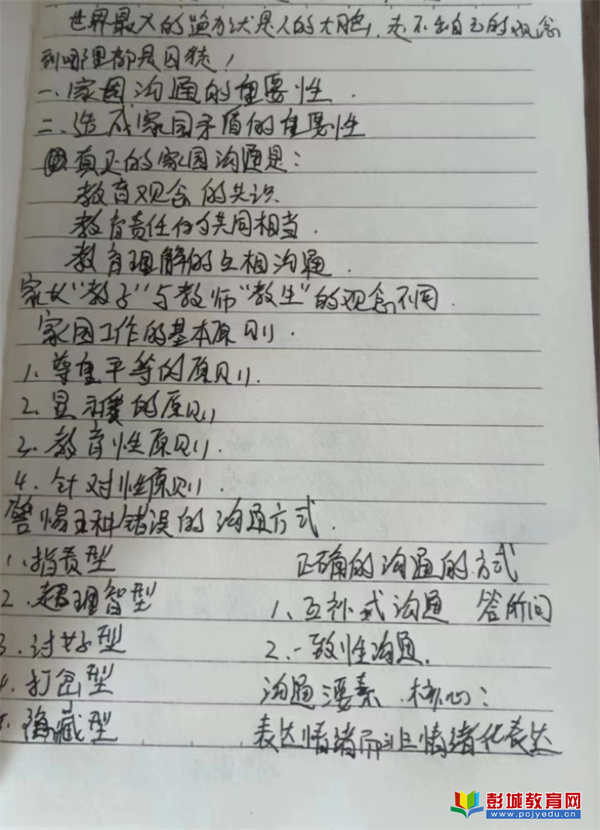 世界最大的监狱是人的大脑，走不出自己的观念
到哪里都是囚徒！
一、家园沟通的重要性.
二、造成家园矛盾的重要性
真正的家园沟通是：
教育观念的共识
教育责任的共同相当.
教育理解的互相沟通.
家长“教子”与教师“教生”的观念不同.
家园工作的基本原则.
1、尊重平等的原则.
2.
的原则
3、教育性原则.
4、针对性原则.
警惕五种错误的沟通方式.
1、指责型
正确的沟通的方式
2、超理智型
1、互补式沟通 答所问
3、讨好型
2、一致性沟通.
4、打岔型
沟通要素 核心：
隐藏型
表达情绪而非情绪化表达
彭城教育网
www.pcjyedu.cn